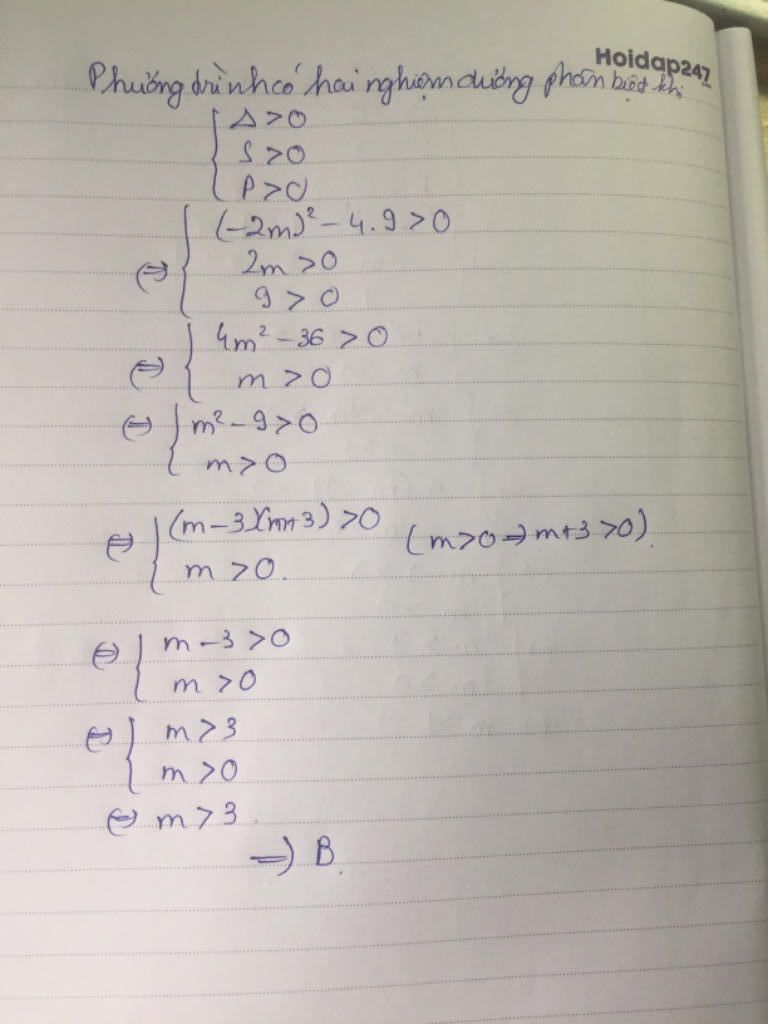 Hoidap247
Phương trình có hai nghiệm dương phân biệt khi
Δ > 0
S > 0
P > 0
⇔ (-2m)² - 4.9 > 0
2m > 0
9 > 0
⇔ 4m² - 36 > 0
m > 0
⇔ m² - 9 > 0
m > 0
⇔ (m-3)(m+3) > 0 (m>0 ⇒ m+3 >0).
m > 0.
⇔ m - 3 > 0
m > 0
⇔ m > 3
m > 0
⇔ m > 3.
⇒ B.